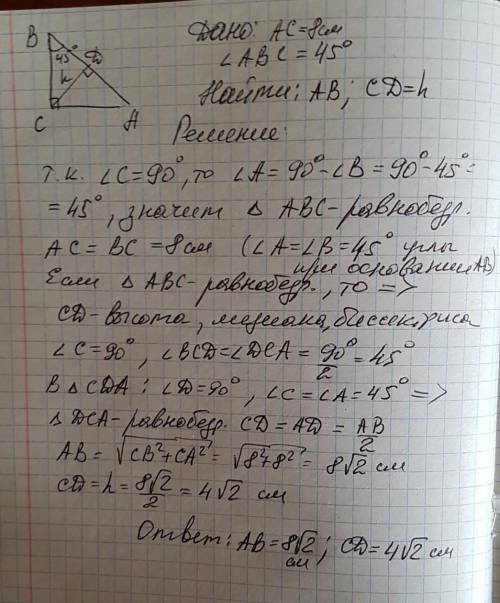 B
45°
D
h
C
A
Дано: AC=8см
∠ABC=45°
Найти: AB; CD=h
Решение:
т.к. ∠C=90°, то ∠A=90°-∠B=90°-45°=
=45°, значит △ ABC-равнобедр.
AC=BC=8см (∠A=∠B=45° углы
при основании AB)
Если △ ABC-равнобедр., то =>
CD-высота, медиана, биссектриса
∠C=90°, ∠BCD=∠DCA=90°/2=45°
В △CDA: ∠D=90°, ∠C=∠A=45° =>
△ DCA-равнобедр. CD=AD=AB/2
AB=√CB²+CA²=√8²+8²=8√2 см
CD=h=8√2/2=4√2 см
Ответ: AB=8√2 см; CD=4√2 см